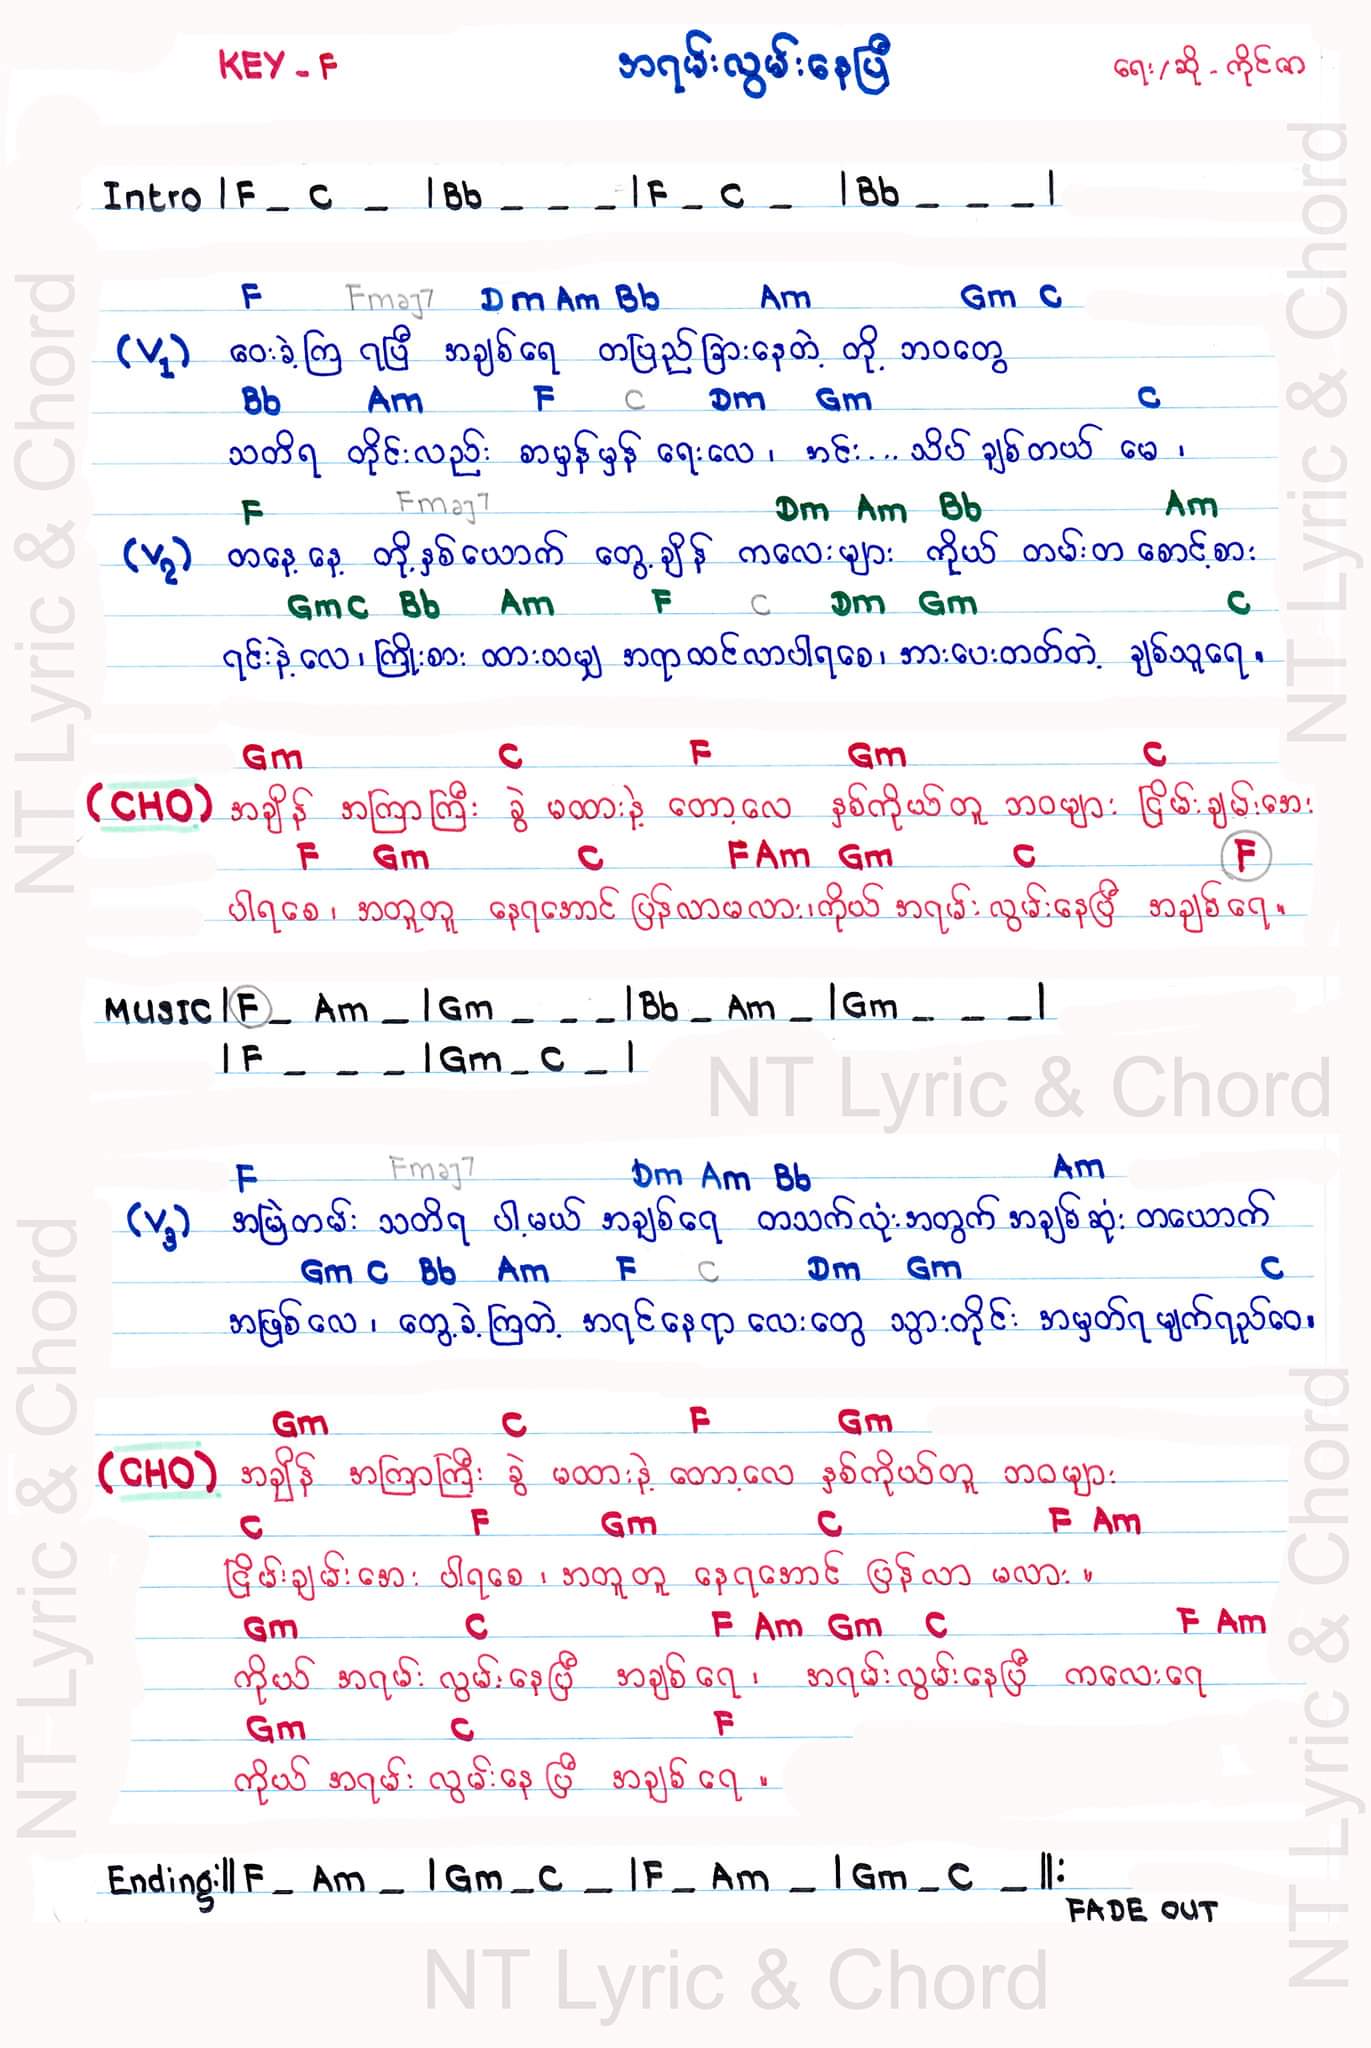 KEY - F အရမ်းလွမ်းနေပြီ ရေး/ဆို - ကိုင်ဇာ
Intro |F _ C _ |Bb _ _ _|F _ C _ |Bb _ _ _|
F Fmaj7 Dm Am Bb Am Gm C
(V1) ဝေးခဲ့ကြ ရပြီ အချစ်ရေ တပြည်ခြားနေတဲ့ တို့ ဘဝတွေ
Bb Am F C Dm Gm C
သတိရ တိုင်းလည်း စာမှန်မှန် ရေးလေ၊ အင်း... သိပ် ချစ်တယ် မေ၊
F Fmaj7 Dm Am Bb Am
(V2) တနေ့နေ့ တို့နှစ်ယောက် တွေ့ချိန် ကလေးများ ကိုယ် တမ်းတ စောင့်စား
Gm C Bb Am F C Dm Gm C
ရင်းနဲ့လေ၊ ကြိုးစား ထားသမျှ အရာထင်လာပါရစေ၊ အားပေးတတ်တဲ့ ချစ်သူရေ။
Gm C F Gm C
(CHO) အချိန် အကြာကြီး ခွဲ မထားနဲ့ တော့လေ နှစ်ကိုယ်တူ ဘဝများ ငြိမ်းချမ်းအေး
F Gm C F Am Gm C F
ပါရစေ၊ အတူတူ နေရအောင် ပြန်လာမလား၊ ကိုယ် အရမ်း လွမ်းနေပြီ အချစ်ရေ။
MUSIC |F _ Am _ |Gm _ _ _|Bb _ Am _ |Gm _ _ _|
|F _ _ _ |Gm _ C _ |
F Fmaj7 Dm Am Bb Am
(V3) အမြဲတမ်း သတိရ ပါ့မယ် အချစ်ရေ တသက်လုံးအတွက် အချစ်ဆုံး တယောက်
Gm C Bb Am F C Dm Gm C
အဖြစ်လေ၊ တွေ့ခဲ့ကြတဲ့ အရင်နေရာ လေးတွေ သွားတိုင်း အမှတ်ရ မျက်ရည်ဝေ။
Gm C F Gm
(CHO) အချိန် အကြာကြီး ခွဲ မထားနဲ့ တော့လေ နှစ်ကိုယ်တူ ဘဝများ
C F Gm C F Am
ငြိမ်းချမ်းအေး ပါရစေ၊ အတူတူ နေရအောင် ပြန်လာ မလား။
Gm C F Am Gm C F Am
ကိုယ် အရမ်း လွမ်းနေပြီ အချစ်ရေ၊ အရမ်းလွမ်းနေပြီ ကလေးရေ
Gm C F
ကိုယ် အရမ်း လွမ်းနေပြီ အချစ်ရေ။
Ending:||F _ Am _ |Gm _ C _ |F _ Am _ |Gm _ C _ ||:
FADE OUT
NT Lyric & Chord
NT Lyric & Chord
NT Lyric & Chord
NT Lyric & Chord
NT Lyric & Chord
NT Lyric & Chord